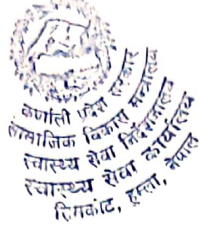 कर्णाली प्रदेश सरकार
सामाजिक विकास मन्त्रालय
स्वास्थ्य सेवा निर्देशनालय
स्वास्थ्य सेवा कार्यालय
सिमकोट, हुम्ला, नेपाल